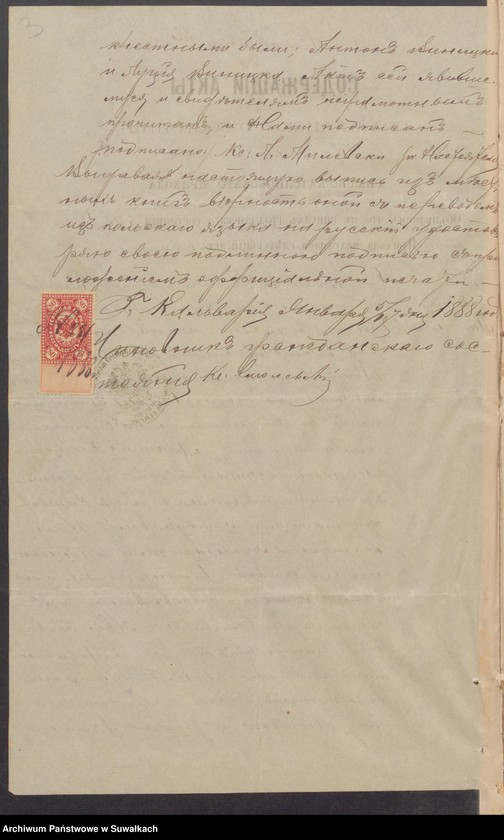 3
крестными были; Антонъ Виницки
и Луція Виницка Актъ сей явивше-
муся и свидѣтелямъ неграмотнымъ
прочитанъ, и Нами подписанъ —
подписано: Кс. А.
Выдавая настоящую выпись изъ
ныхъ книгъ вѣрность оной съ переводомъ
изъ польскаго языка на русскій удостов-
ряю своею подлинною подписью съ при-
ложеніемъ оффиціальной печати —
Г. Кальварія Января 5/17 дня 1888 года
Чиновникъ гражданскаго сос-
тоянія Кс.
СОДЕРЖАЩІЙ АКТЫ
Archiwum Państwowe w Suwałkach